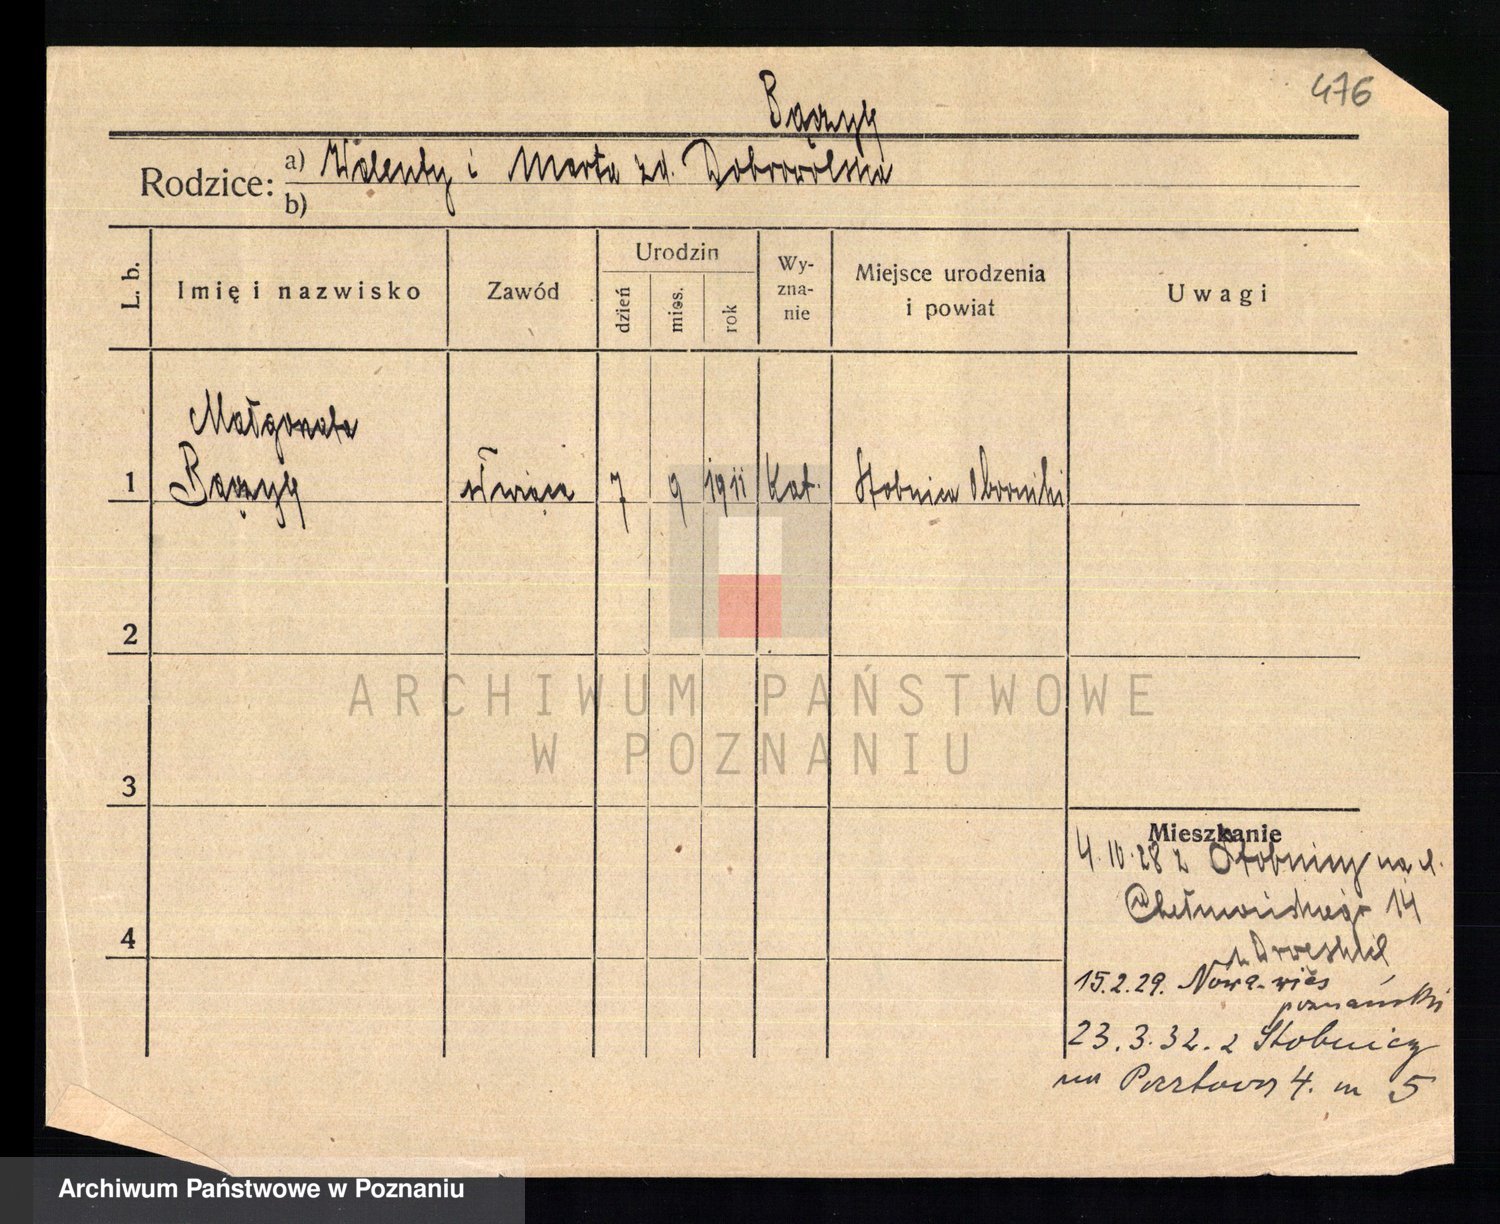 476
Bączyk
Rodzice: a) Walenty i Marta zd. Dobrowolska
b)
L. b.
Imię i nazwisko
Zawód
Urodzin
dzień
mies.
rok
Wy-
zna-
nie
Miejsce urodzenia
i powiat
Uwagi
Małgorzata
1 Bączyk służąca 7 9 1911 kat. Stobnica Oborniki
2
ARCHIWUM PAŃSTWOWE
W POZNANIU
3
Mieszkanie
4.10.28 z Stobnicy na ul.
Chełmońskiego 14
4
15.2.29. Nowa-wieś
poznański
23.3.32. z Stobnicy
na Pocztową 4. m 5
Archiwum Państwowe w Poznaniu